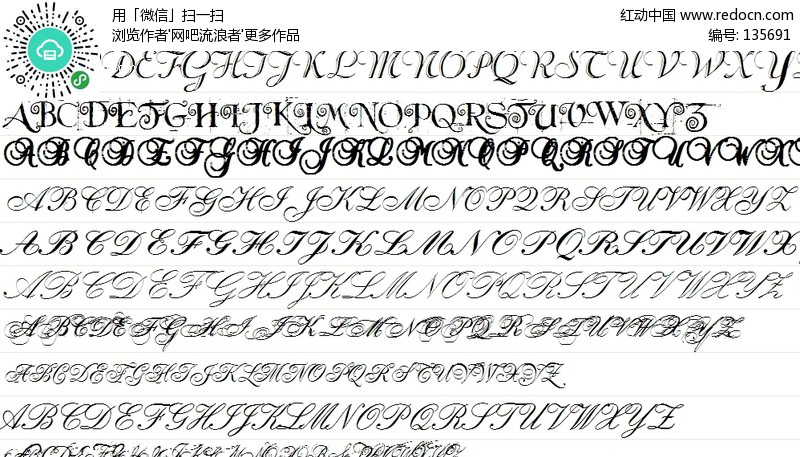 用「微信」扫一扫
红动中国 www.redocn.com
浏览作者'网吧流浪者'更多作品
编号: 135691
DEFGHIJKLMNOPQRSTUVWXYZ
ABCDEFGHIJKLMNOPQRSTUVWXYZ
ABCDEFGHIJKLMNOPQRSTUVWX
ABCDEFGHIJKLMNOPQRSTUVWXYZ
ABCDEFGHIJKLMNOPQRSTUVWXY
ABCDEFGHIJKLMNOPQRSTUVWXYZ
ABCDEFGHIJKLMNOPQRSTUVWXYZ
ABCDEFGHIJKLMNOPQRSTUVWXYZ
ABCDEFGHIJKLMNOPQRSTUVWXYZ